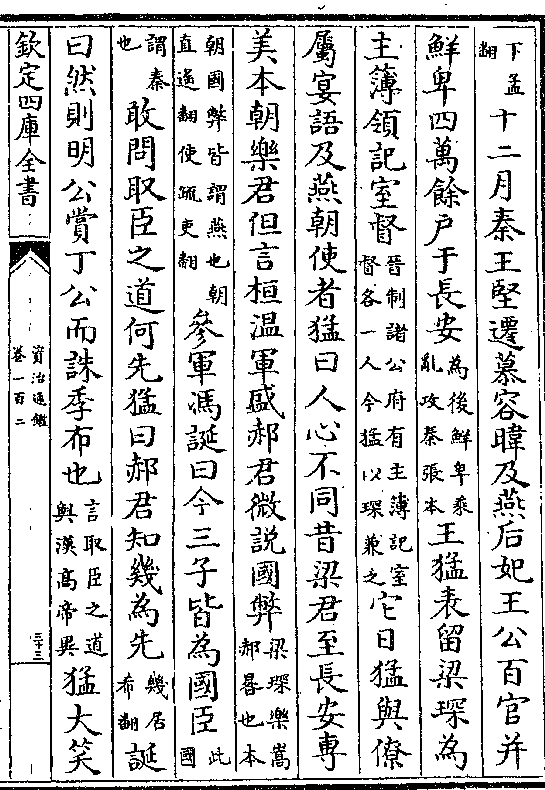 下孟翻十二月秦王堅遷慕容暐及燕后妃王公百官并
鮮卑四萬餘户于長安為後鮮卑乘亂攻秦張本王猛表留梁琛為
主簿領記室督晉制諸公府有主簿記室督各一人今猛以琛兼之它日猛與僚
屬宴語及燕朝使者猛曰人心不同昔梁君至長安專
美本朝樂君但言桓温軍盛郝君微說國弊梁琛樂嵩郝晷也本
朝國弊皆謂燕也朝直遙翻使疏吏翻參軍馮誕曰今三子皆為國臣此國
謂秦也敢問取臣之道何先猛曰郝君知幾為先幾居希翻誕
曰然則明公賞丁公而誅季布也言取臣之道與漢高帝異猛大笑
欽定四庫全書
資治通鑑
卷一百二